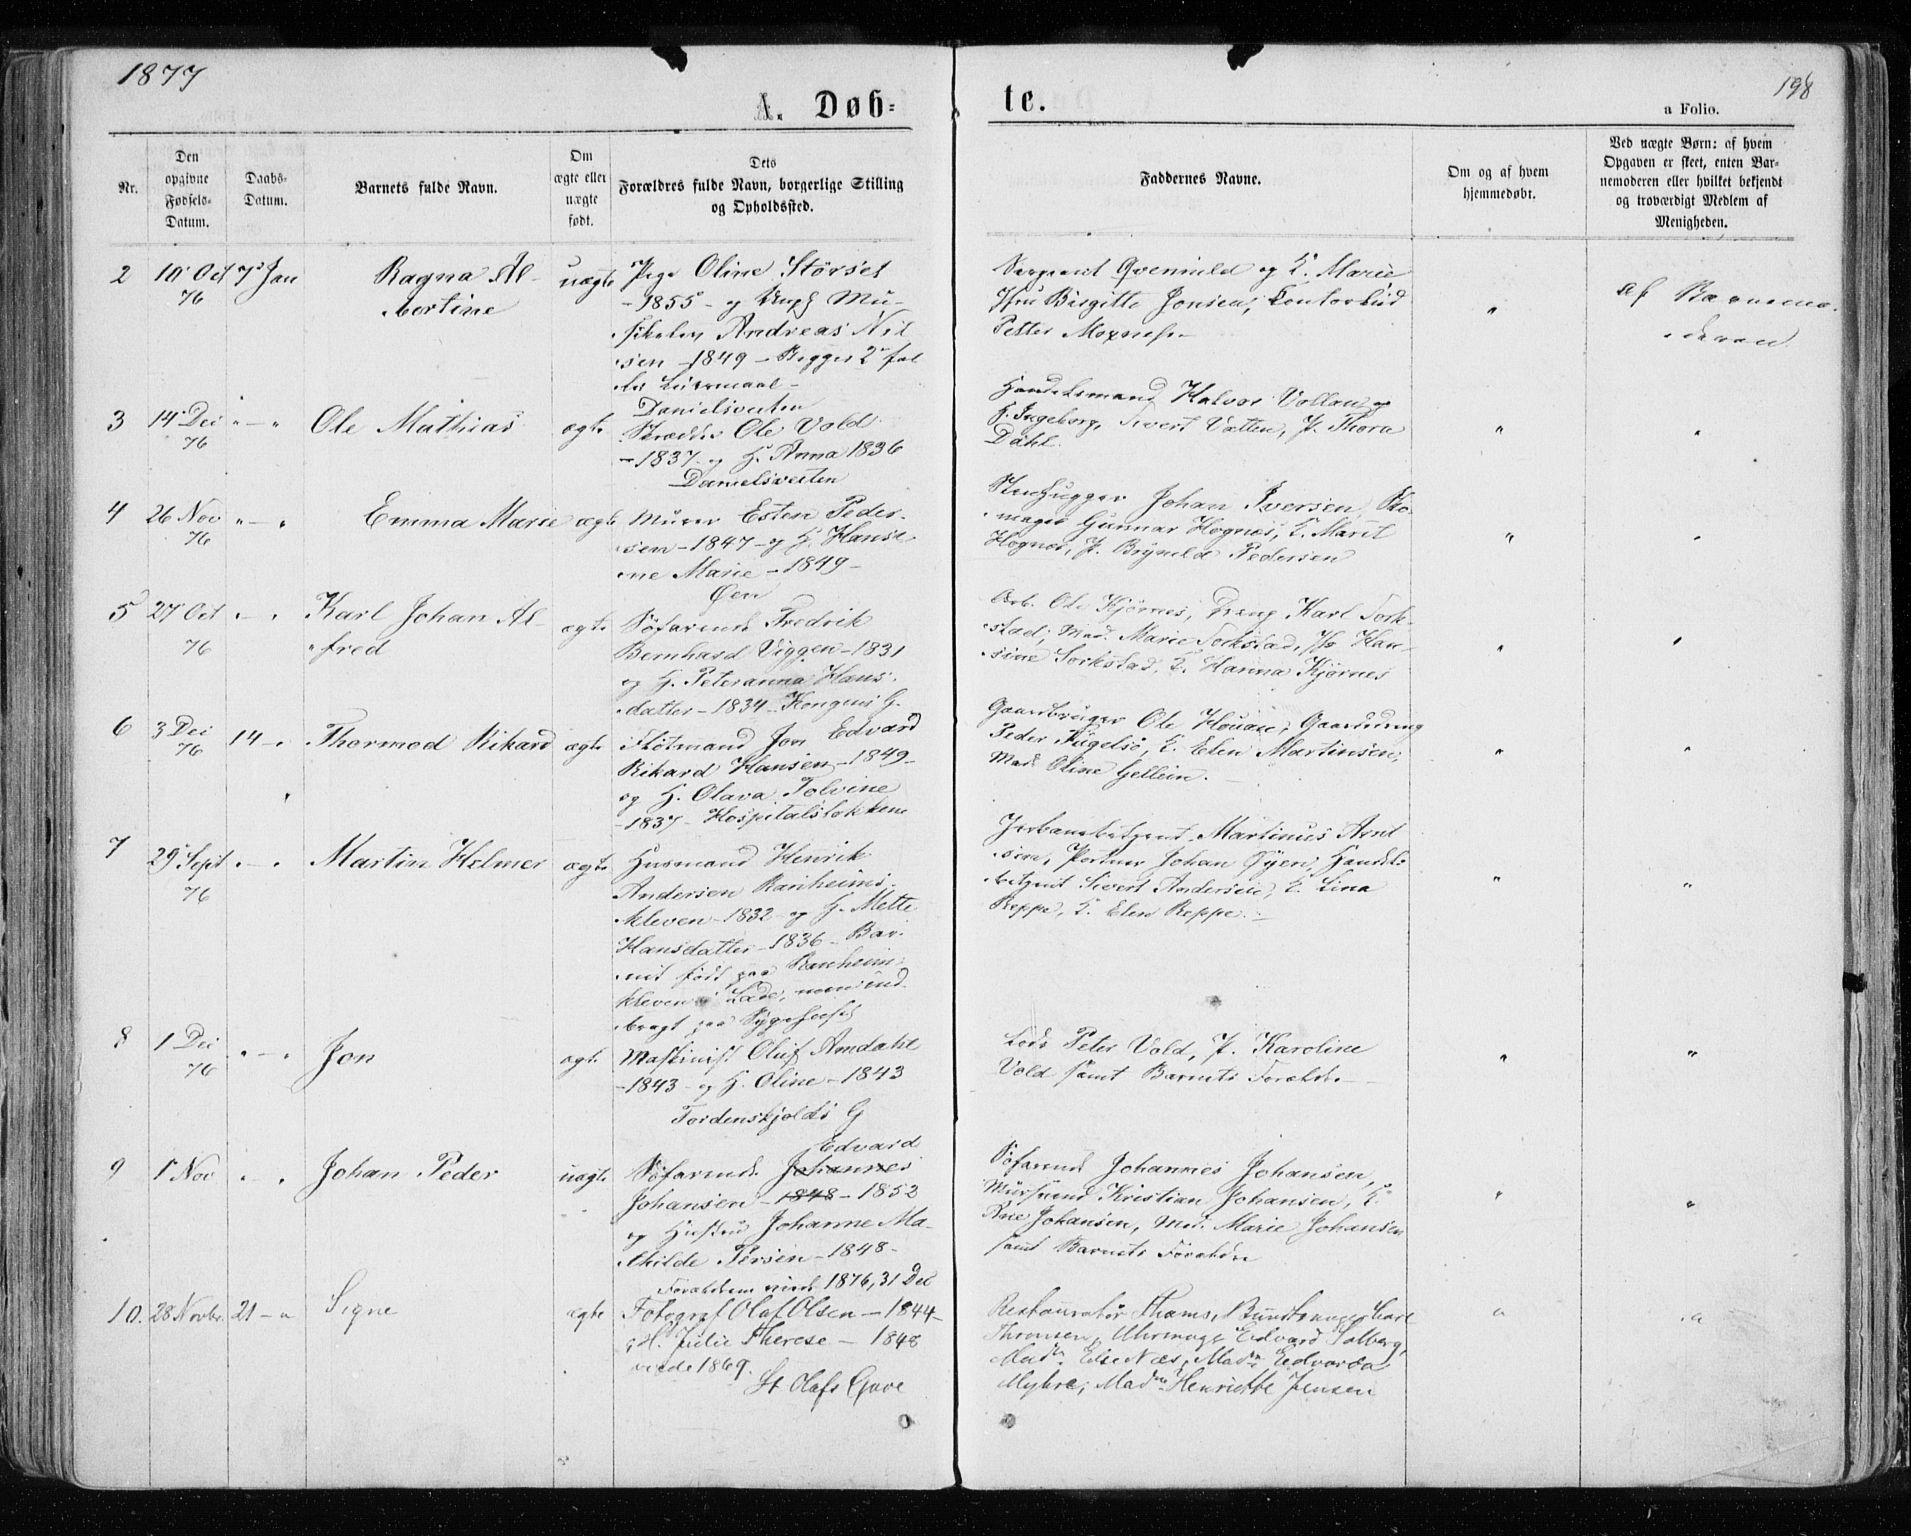 1877
198
A. Døb-
te.
a Folio.
Nr.
Den
opgivne
Fødsels-
Datum.
Daabs-
Datum.
Barnets fulde Navn.
Om
ægte eller
uægte
født.
Dets
Forældres fulde Navn, borgerlige Stilling
og Opholdssted.
Faddernes Navne.
Om og af hvem
hjemmedøbt.
Ved uægte Børn: af hvem
Opgaven er skeet, enten Bar-
nemoderen eller hvilket bekjendt
og troværdigt Medlem af
Menigheden.
2
10 Oct
76
7 Jan
Ragna Al-
bertine
uægte
Pige Oline Størset
-1855- og Ungk Mu-
sikelev Andreas Nil
sen -1849- Begges 2' fal
Danielsveiten
Sergeant Qvenild og E. Marie
Fru Birgitte Jonsen, Kontorbud
Petter Moxness
"
Af Barnemo-
deren
3
14 Dec
76
" - "
Ole Mathias
ægte
Skrædder Ole Vold
-1837- og H. Anna 1836
Danielsveiten
Handelsmand Halvor Vollan og
H. Ingeborg, Sivert Vatten, P. Thora
Dahl.
"
"
4
26 Nov
76
" - "
Emma Marie
ægte
Murer Esten Peder-
sen -1847- og H. Hansi
ne Marie -1849-
Øen
Stenhugger Johan Iversen, Sko-
mager Gunnar Hognes, E. Marit
Hognes, P. Brynild Pedersen
"
"
5
27 Oct
76
" - "
Karl Johan Al-
fred
ægte
Søfarende Fredrik
Bernhard Viggen -1831
og H. Peteranna Hans-
datter -1834- Kongens G.
Arb. Ole Kjørnes, Dreng Karl Sork-
stad, Mad. Marie Sorkstad, Han-
sine Sorkstad, E. Hanna Kjørnes
"
"
6
3 Dec
76
14 - "
Thormod Rikard
ægte
Flötmand Jon Edvard
Rikard Hansen -1849-
og H. Olava Tolvine
-1837- Hospitalsløkken
Gaardbruger Ole Houan, Gaarddreng
Peder Fugelsö, E. Elen Martinsen,
Mad. Oline Gellein.
"
"
7
29 Sept
76
" - "
Martin Helmer
ægte
Husmand Henrik
Andersen Ranheims-
kleven -1832- og H. Mette
Hansdatter -1836- Bar-
net født paa Ranheim-
kleven i Lade, men ind-
bragt paa Sygehuset
Jernbanebetjent Martinus Arnt
sen, Portner Johan Øyen, Handels-
betjent Sivert Andersen, E. Lina
Reppe, E. Elen Reppe.
"
"
8
1 Dec
76
" - "
Jon
ægte
Maskinist Oluf Amdahl
-1843- og H. Oline -1843
Tordenskjolds G
Lods Peter Vold, P. Karoline
Vold samt Barnets Forældre
"
"
9
1 Nov
" - "
Johan Peder
uægte
Edvard
Søfarende Johannes
Johansen -1848- 1852
og Hustru Johanne Ma-
thilde Persen -1848-
Forældrene viede 1876, 31 Dec
Søfarend Johannes Johansen,
Mursvend Kristian Johansen, E.
Ane Johansen, Mad. Marie Johansen
samt Barnets Forældre
"
"
10.
28 Novbr.
21 - "
Signe
ægte
Fotograf Olaf Olsen - 1844 -
& H. Julie Therese - 1848
viede 1869.
St Olafs Gade
Restauratør Thams, Buntmager Carl
Thronsen, Uhrmager Edvard Solberg,
Madm. Else Næs, Madm. Edvarda
Myhre, Madm. Henriette Jensen
"
"